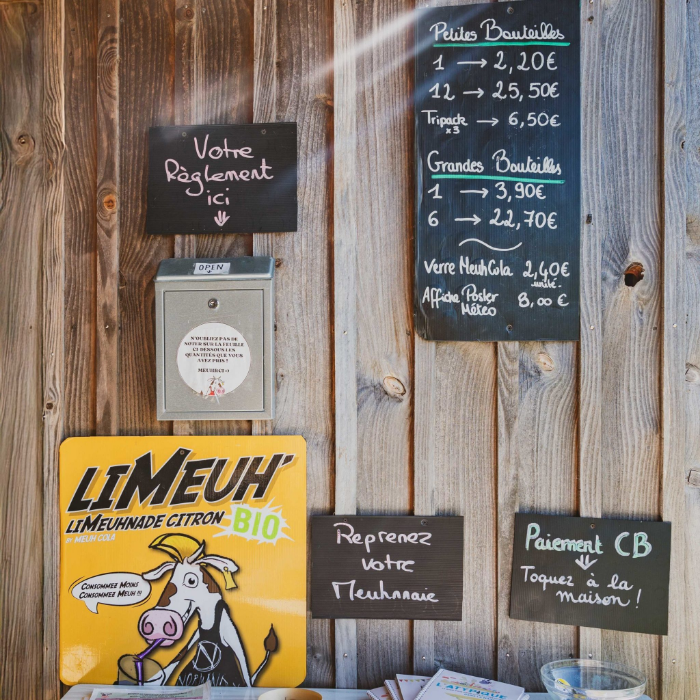 Petites Bouteilles
1 → 2,20€
12 → 25,50€
Tripack → 6,50€
x3
Grandes Bouteilles
1 → 3,90€
6 → 22,70€
Verre MeuhCola 2,40€
unité
Affiche Poster 8,00€
Météo
Votre
Règlement
ici
OPEN
N'OUBLIEZ PAS DE
NOTER SUR LA FEUILLE
CI DESSOUS LES
QUANTITÉS QUE VOUS
AVEZ PRIS !
MEUHRCI :)
LIMEUH'
LIMEUHNADE CITRON BIO
& MEUH COLA
CONSOMMEZ MOINS
CONSOMMEZ MEUH !!!
N
Reprenez
votre
Meuhnnaie
Paiement CB
Toquez à la
maison !
ATYPIQUE